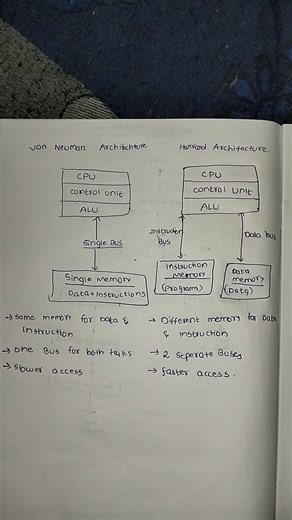 Von Neuman Architechture
CPU
control unit
ALU
Single Bus
Single Memory
Data+Instructions
→ Same memory for Data &
Instruction
→ One Bus for both tasks
→ Slower access
Harvard Architecture.
CPU
control unit
ALU
Instruction
Bus
Data bus
Instruction
Memory
(Programs)
Data
memory
(Data)
→ Different memory for Data
& instruction
→ 2 Seperate Buses
→ faster access.